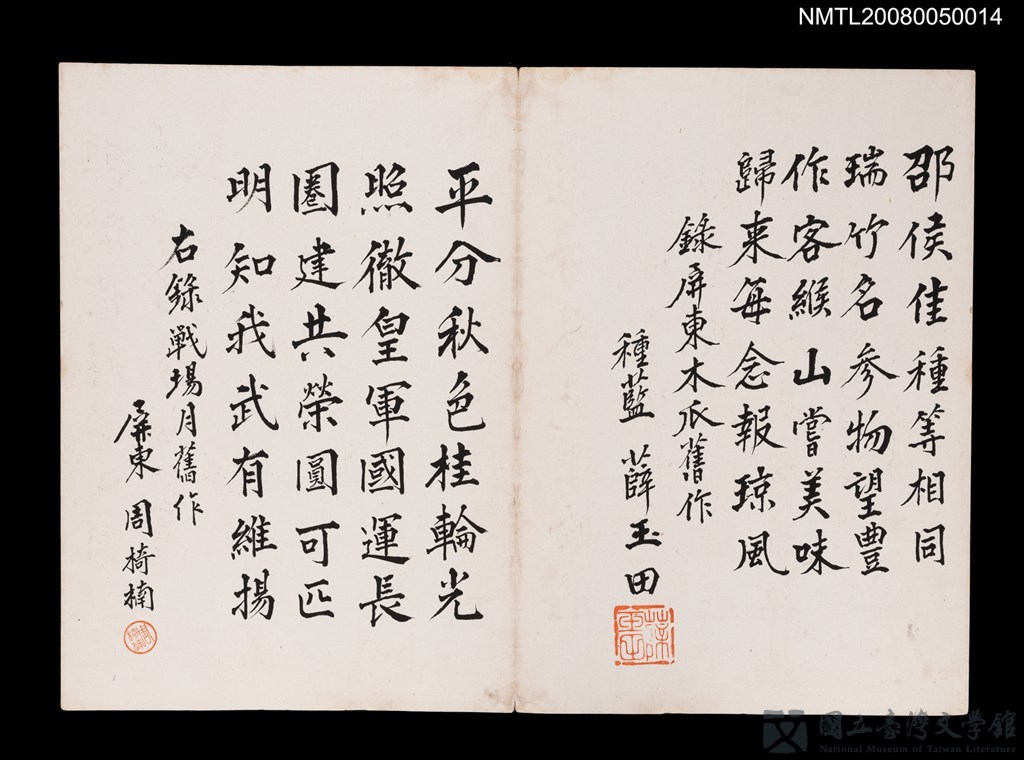 NMTL20080050014
邵侯佳種等相同
瑞竹名参物望豐
作客緱山嘗美味
歸来每念報琼風
錄屏東木瓜舊作
種藍 薛玉田
平分秋色桂輪光
照徹皇軍國運長
圈建共榮圓可匹
明知我武有維揚
右錄戰場月舊作
屏東 周椅楠
國立臺灣文學館
National Museum of Taiwan Literature